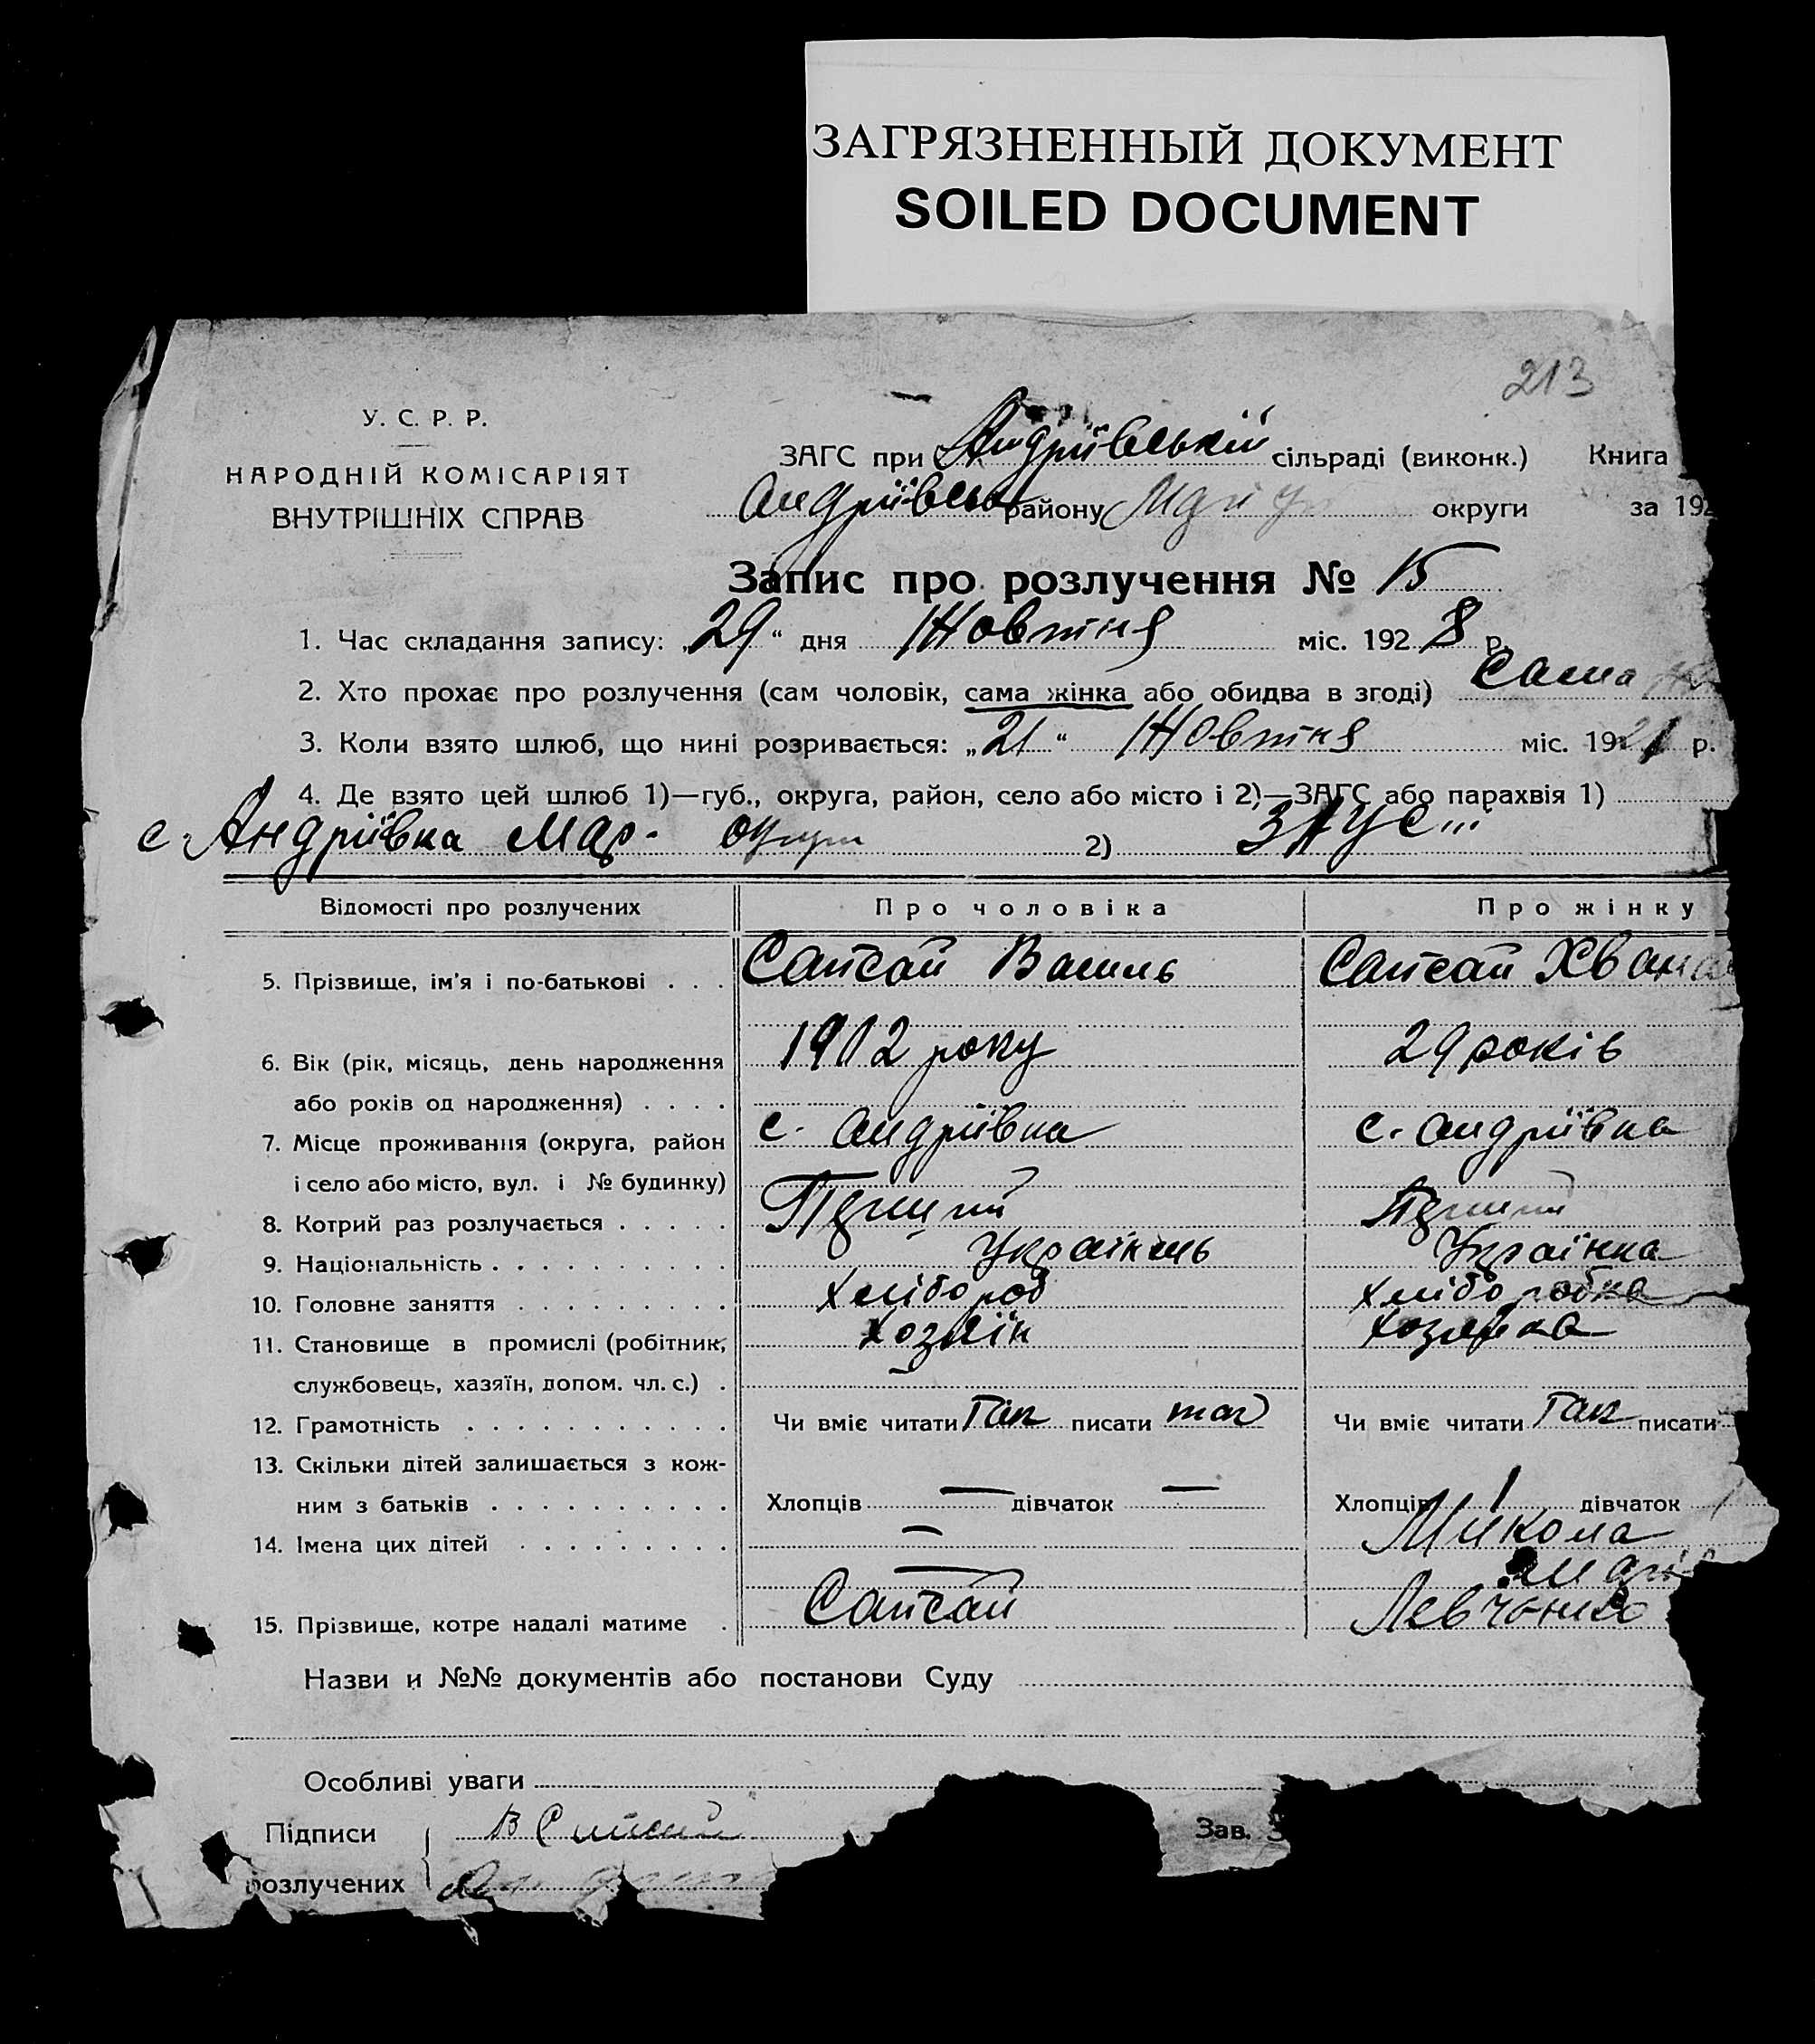 ЗАГРЯЗНЕННЫЙ ДОКУМЕНТ
SOILED DOCUMENT
213
У. С. Р. Р.
НАРОДНІЙ КОМІСАРІЯТ
ВНУТРІШНІХ СПРАВ
ЗАГС при Андріївській сільраді (виконк.) Книга
Андріївськ району округи за 192
Запис про розлучення № 15
1. Час складання запису: „29“ дня Жовтня міс. 192 8 р.
2. Хто прохає про розлучення (сам чоловік, сама жінка або обидва в згоді) сама
3. Коли взято шлюб, що нині розривається: „21“ Жовтня міс. 1921 р.
4. Де взято цей шлюб 1)—губ., округа, район, село або місто і 2)—ЗАГС або парахвія 1)
с. Андріївка Мар. округи 2)
Відомості про розлучених Про чоловіка Про жінку
5. Прізвище, ім'я і по-батькові . . . Сапсай Василь Сапсай
6. Вік (рік, місяць, день народження 1902 року 29 років
або років од народження) . . . .
7. Місце проживання (округа, район с. Андріївка с. Андріївка
і село або місто, вул. і № будинку)
8. Котрий раз розлучається . . . . .
9. Національність . . . . . . . . . . Українець Українка
10. Головне заняття . . . . . . . . . Хлібороб Хліборобка
11. Становище в промислі (робітник, Хозяїн Хозяйка
службовець, хазяїн, допом. чл. с.) .
12. Грамотність . . . . . . . . . . . Чи вміє читати Так писати так Чи вміє читати Так писати
13. Скільки дітей залишається з кож-
ним з батьків . . . . . . . . . . Хлопців — дівчаток — Хлопців 1 дівчаток 1
14. Імена цих дітей . . . . . . . . . — Микола
—
15. Прізвище, котре надалі матиме . Сапсай Левченко
Назви и №№ документів або постанови Суду
Особливі уваги
Підписи В Сапсай Зав. З
розлучених